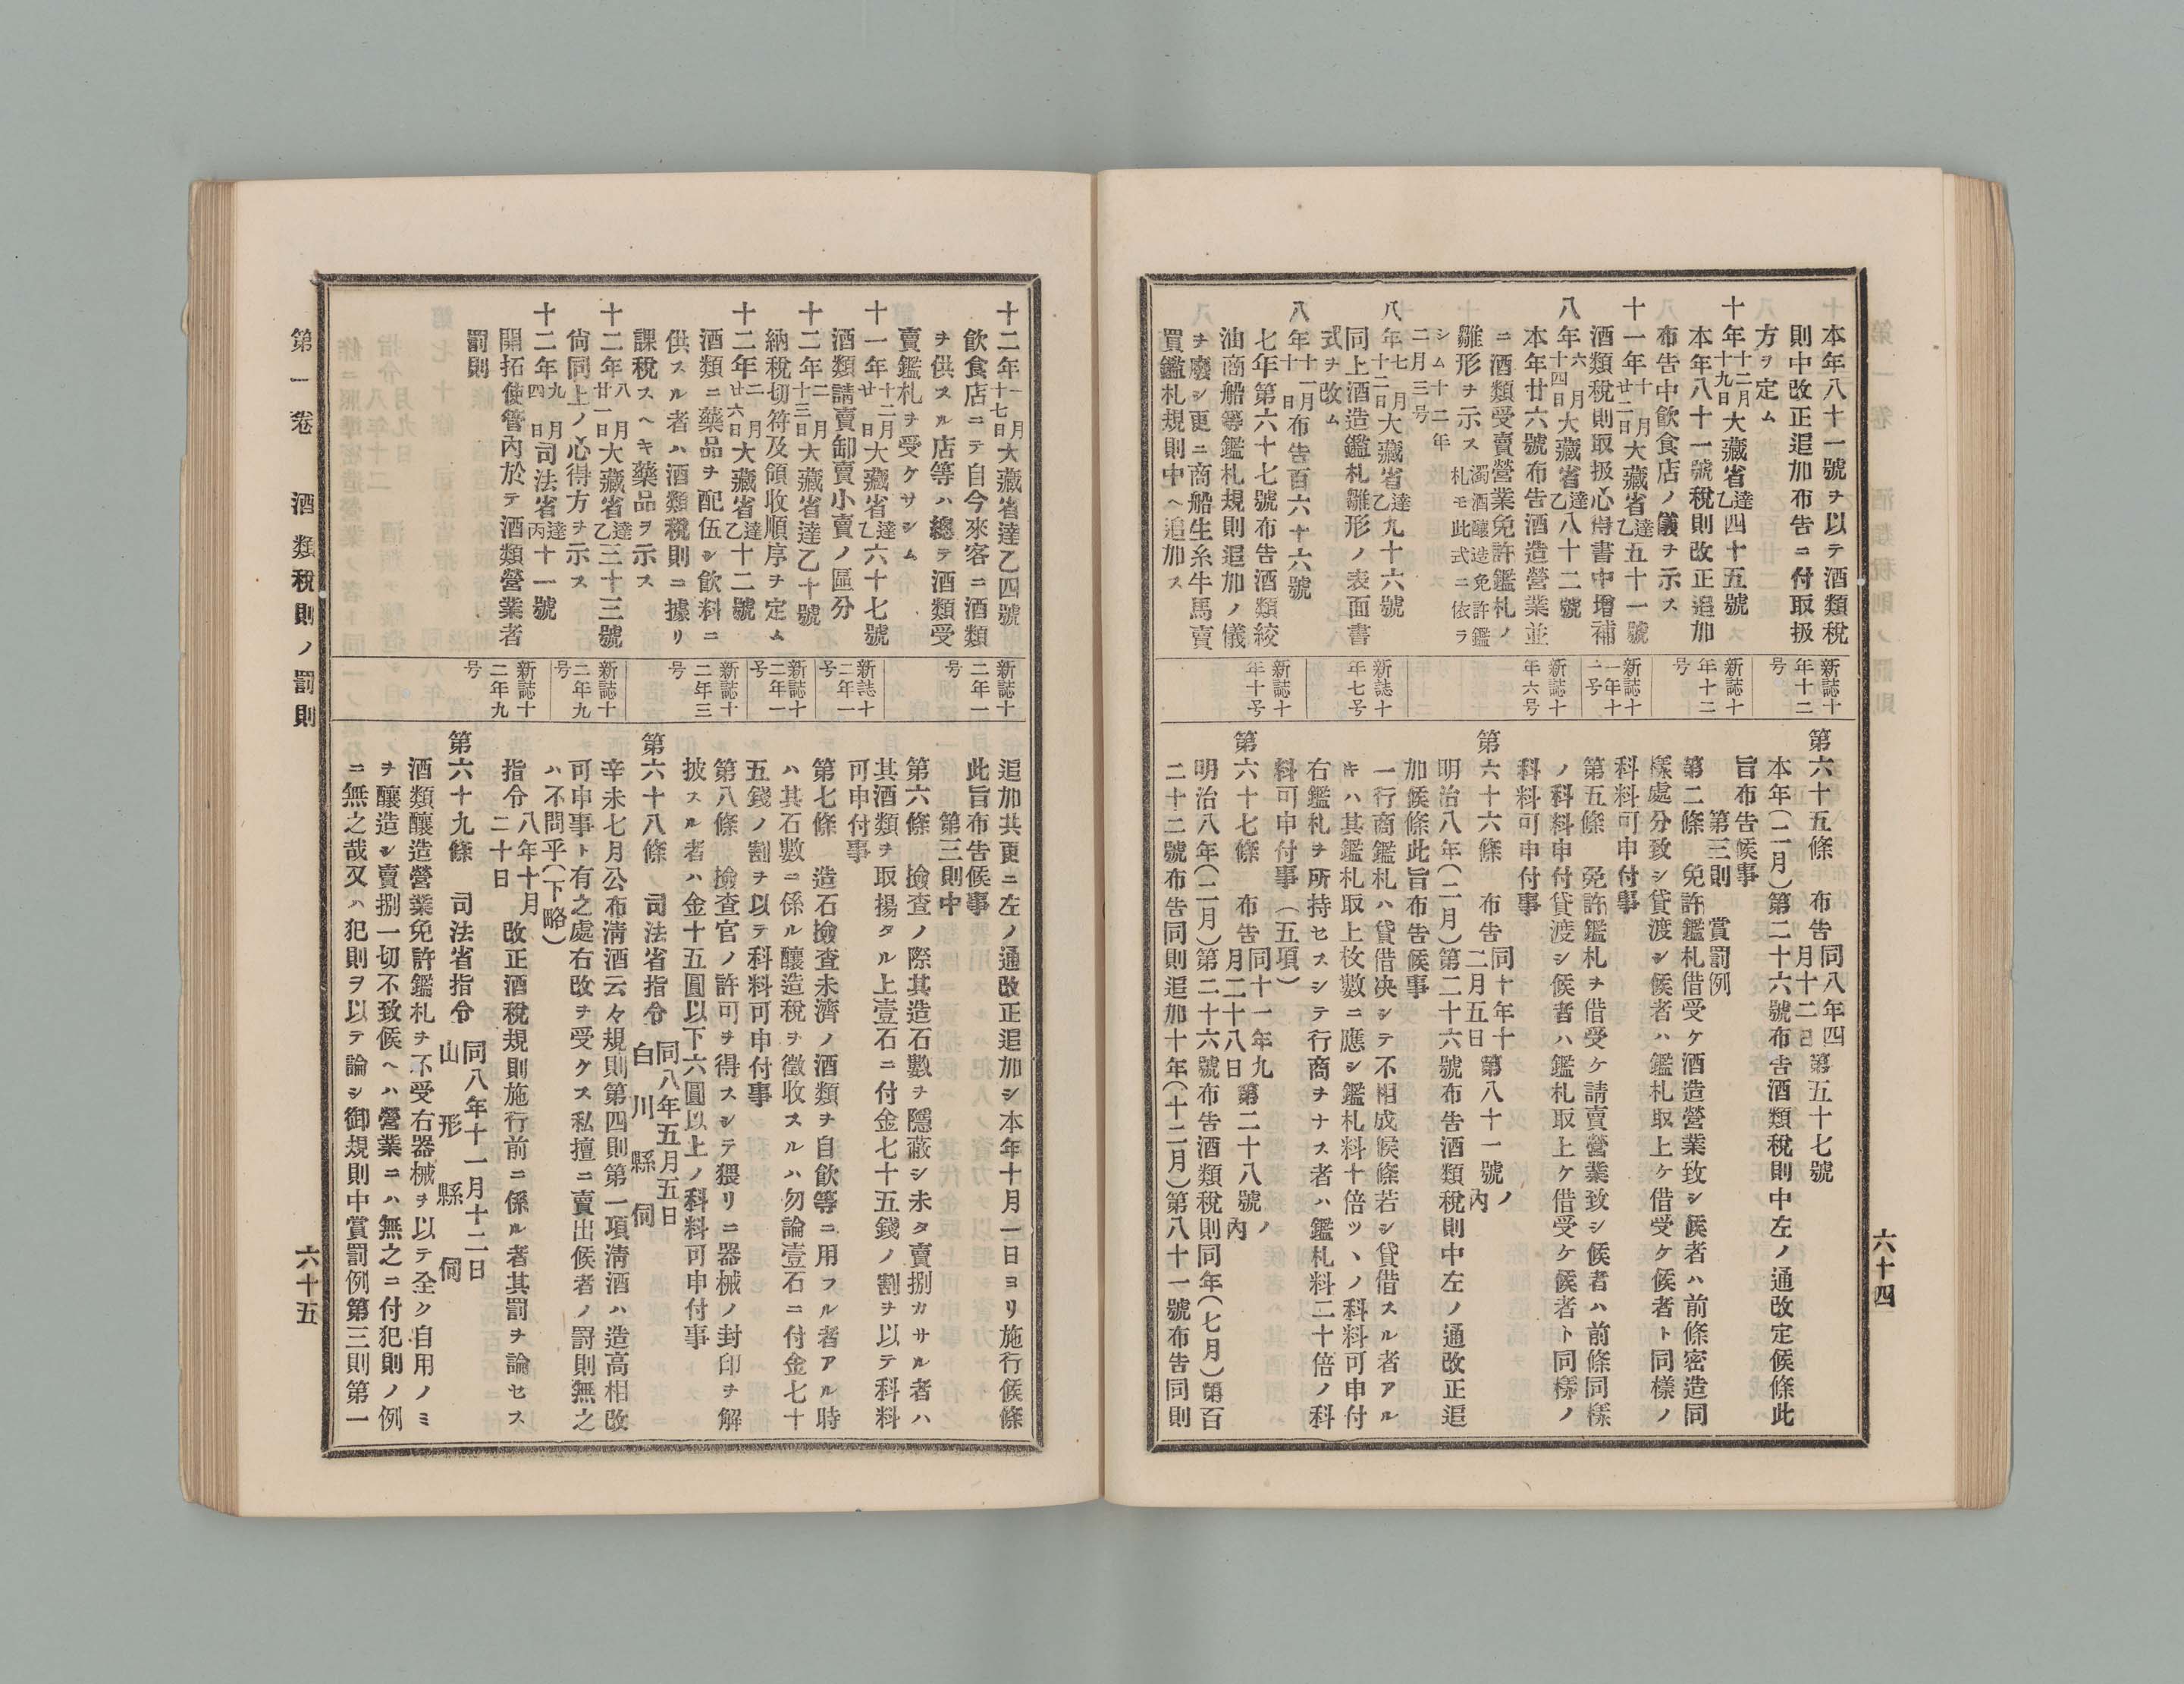 本年八十一號ヲ以テ酒類稅
則中改正追加布告ニ付取扱
方ヲ定ム
十年十二月十九日大藏省達乙四十五號
本年八十一號稅則改正追加
布告中飲食店ノ儀ヲ示ス
十一年十月廿二日大藏省達乙五十一號
酒類稅則取扱心得書中增補
八年六月十四日大藏省達乙八十二號
本年廿六號布告酒造營業並
ニ酒類受賣營業免許鑑札ノ
雛形ヲ示ス濁酒釀造免許鑑札モ此式ニ依ラ
シム十二年二月三号
八年七月十二日大藏省達乙九十六號
同上酒造鑑札雛形ノ表面書
式ヲ改ム
八年十一月十日布告百六十六號
七年第六十七號布告酒類絞
油商船等鑑札規則追加ノ儀
ヲ廢シ更ニ商船生糸牛馬賣
買鑑札規則中ヘ追加ス
新誌十年十二号
新誌十年十二号
新誌十一年十一号
新誌十年六号
新誌十年七号
新誌十年十号
第六十五條　布告同八年四月十二日第五十七號
本年(二月)第二十六號布告酒類稅則中左ノ通改定候條此
旨布告候事
第三則　賞罰例
第二條　免許鑑札借受ケ酒造營業致シ候者ハ前條密造同
樣處分致シ貸渡シ候者ハ鑑札取上ケ借受ケ候者ト同樣ノ
科料可申付事
第五條　免許鑑札ヲ借受ケ請賣營業致シ候者ハ前條同樣
ノ科料申付貸渡シ候者ハ鑑札取上ケ借受ケ候者ト同樣ノ
科料可申付事
第六十六條　布告同十年十二月五日第八十一號ノ內
明治八年(二月)第二十六號布告酒類稅則中左ノ通改正追
加候條此旨布告候事
一行商鑑札ハ貸借決シテ不相成候條若シ貸借スル者アル
キハ其鑑札取上枚數ニ應シ鑑札料十倍ツヽノ科料可申付
右鑑札ヲ所持セスシテ行商ヲナス者ハ鑑札料二十倍ノ科
料可申付事(五項)
第六十七條　布告同十一年九月二十八日第二十八號ノ內
明治八年(二月)第二十六號布告酒類稅則同年(七月)第百
二十二號布告同則追加十年(十二月)第八十一號布告同則
六十四
十二年一月十七日大藏省達乙四號
飮食店ニテ自今來客ニ酒類
ヲ供スル店等ハ總テ酒類受
賣鑑札ヲ受ケサシム
十一年十二月廿日大藏省達乙六十七號
酒類請賣卸賣小賣ノ區分
十二年二月十三日大藏省達乙十號
納稅切符及領收順序ヲ定ム
十二年二月廿六日大藏省達乙十二號
酒類ニ藥品ヲ配伍シ飮料ニ
供スル者ハ酒類稅則ニ據リ
課稅スヘキ藥品ヲ示ス
十二年八月廿一日大藏省達乙三十三號
尙同上ノ心得方ヲ示ス
十二年九月四日司法省達丙十一號
開拓使管內於テ酒類營業者
罰則
新誌十二年一号
新誌十二年一号
新誌十二年一号
新誌十二年三号
新誌十二年九号
新誌十二年九号
追加共更ニ左ノ通改正追加シ本年十月一日ヨリ施行候條
此旨布告候事
第三則中
第六條　撿查ノ際其造石數ヲ隱蔽シ未タ賣捌カサル者ハ
其酒類ヲ取揚タル上壹石ニ付金七十五錢ノ割ヲ以テ科料
可申付事
第七條　造石撿查未濟ノ酒類ヲ自飮等ニ用フル者アル時
ハ其石數ニ係ル釀造稅ヲ徵收スルハ勿論壹石ニ付金七十
五錢ノ割ヲ以テ科料可申付事
第八條　撿查官ノ許可ヲ得スシテ猥リニ器械ノ封印ヲ解
披スル者ハ金十五圓以下六圓以上ノ科料可申付事
第六十八條　司法省指令同八年五月五日白川縣伺
辛未七月公布淸酒云々規則第四則第一項淸酒ハ造高相改
可申事ト有之處右改ヲ受ケス私擅ニ賣出候者ノ罰則無之
ハ不問乎(下略)
指令八年十月二十日　改正酒稅規則施行前ニ係ル者其罰ヲ論セス
第六十九條　司法省指令同八年十一月十二日山形縣伺
酒類釀造營業免許鑑札ヲ不受右器械ヲ以テ全ク自用ノミ
ヲ釀造シ賣捌一切不致候ヘハ營業ニハ無之ニ付犯則ノ例
ニ無之哉又ハ犯則ヲ以テ論シ御規則中賞罰例第三則第一
第一卷　酒類稅則ノ罰則
六十五